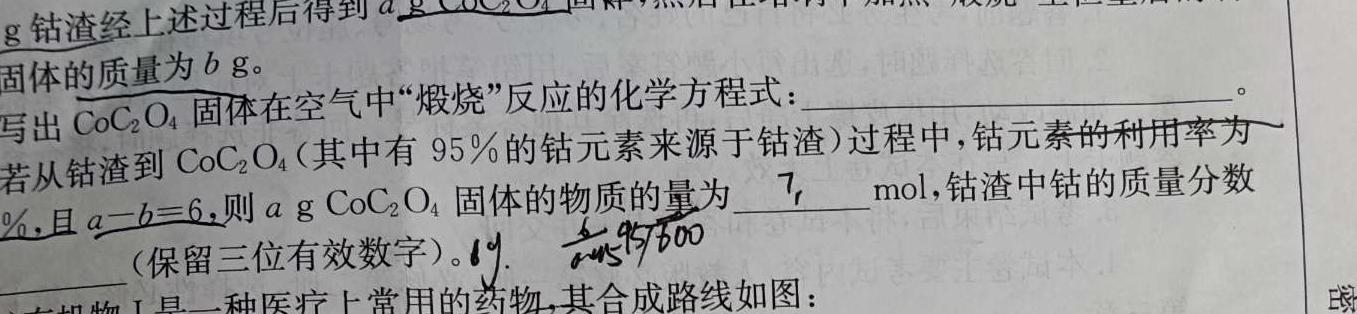 g 钴渣经上述过程后得到 a g CoC₂O₄ 固体
固体的质量为 b g。
写出 CoC₂O₄ 固体在空气中“煅烧”反应的化学方程式：____。
若从钴渣到 CoC₂O₄(其中有 95%的钴元素来源于钴渣)过程中,钴元素的利用率为
%,且 a－b＝6,则 a g CoC₂O₄ 固体的物质的量为____mol,钴渣中钴的质量分数
____(保留三位有效数字)。
有机物 I 是一种医疗上常用的药物,其合成路线如图：
密